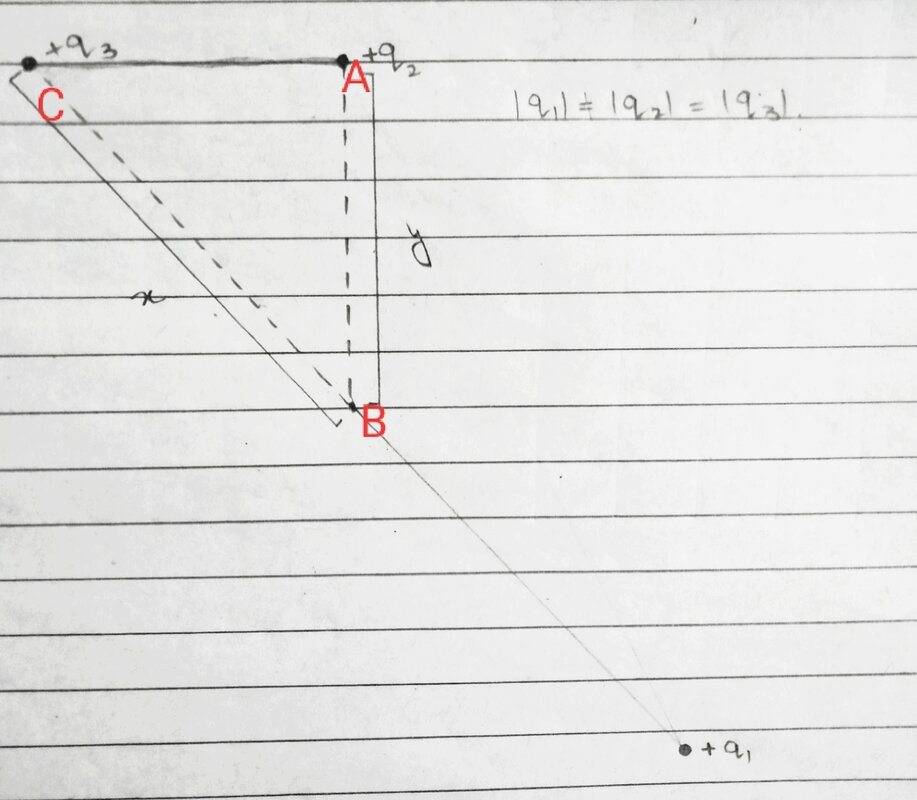 +q₃
+q₂
A
C
|q₁| = |q₂| = |q₃|.
y
x
B
+q₁